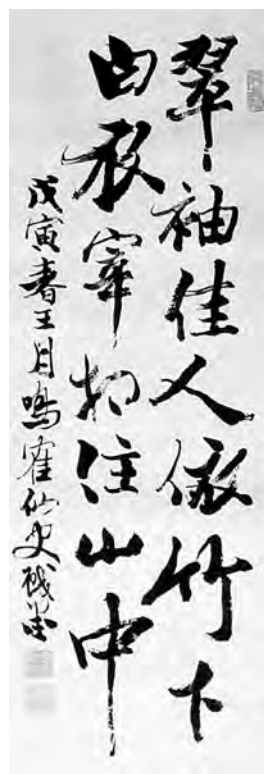 翠袖佳人依竹下
白衣宰相住山中
戊寅春王月鳴鶴仙史